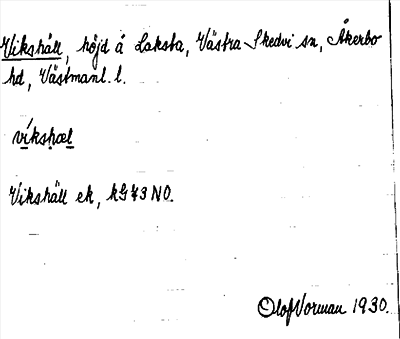 Vikshäll, höjd å Laksta, Västra Skedvi sn, Åkerbo
hd, Västmanl. l.
víkshæl
Vikshäll ek, kG 43 NO.
Olof Vorman 1930.